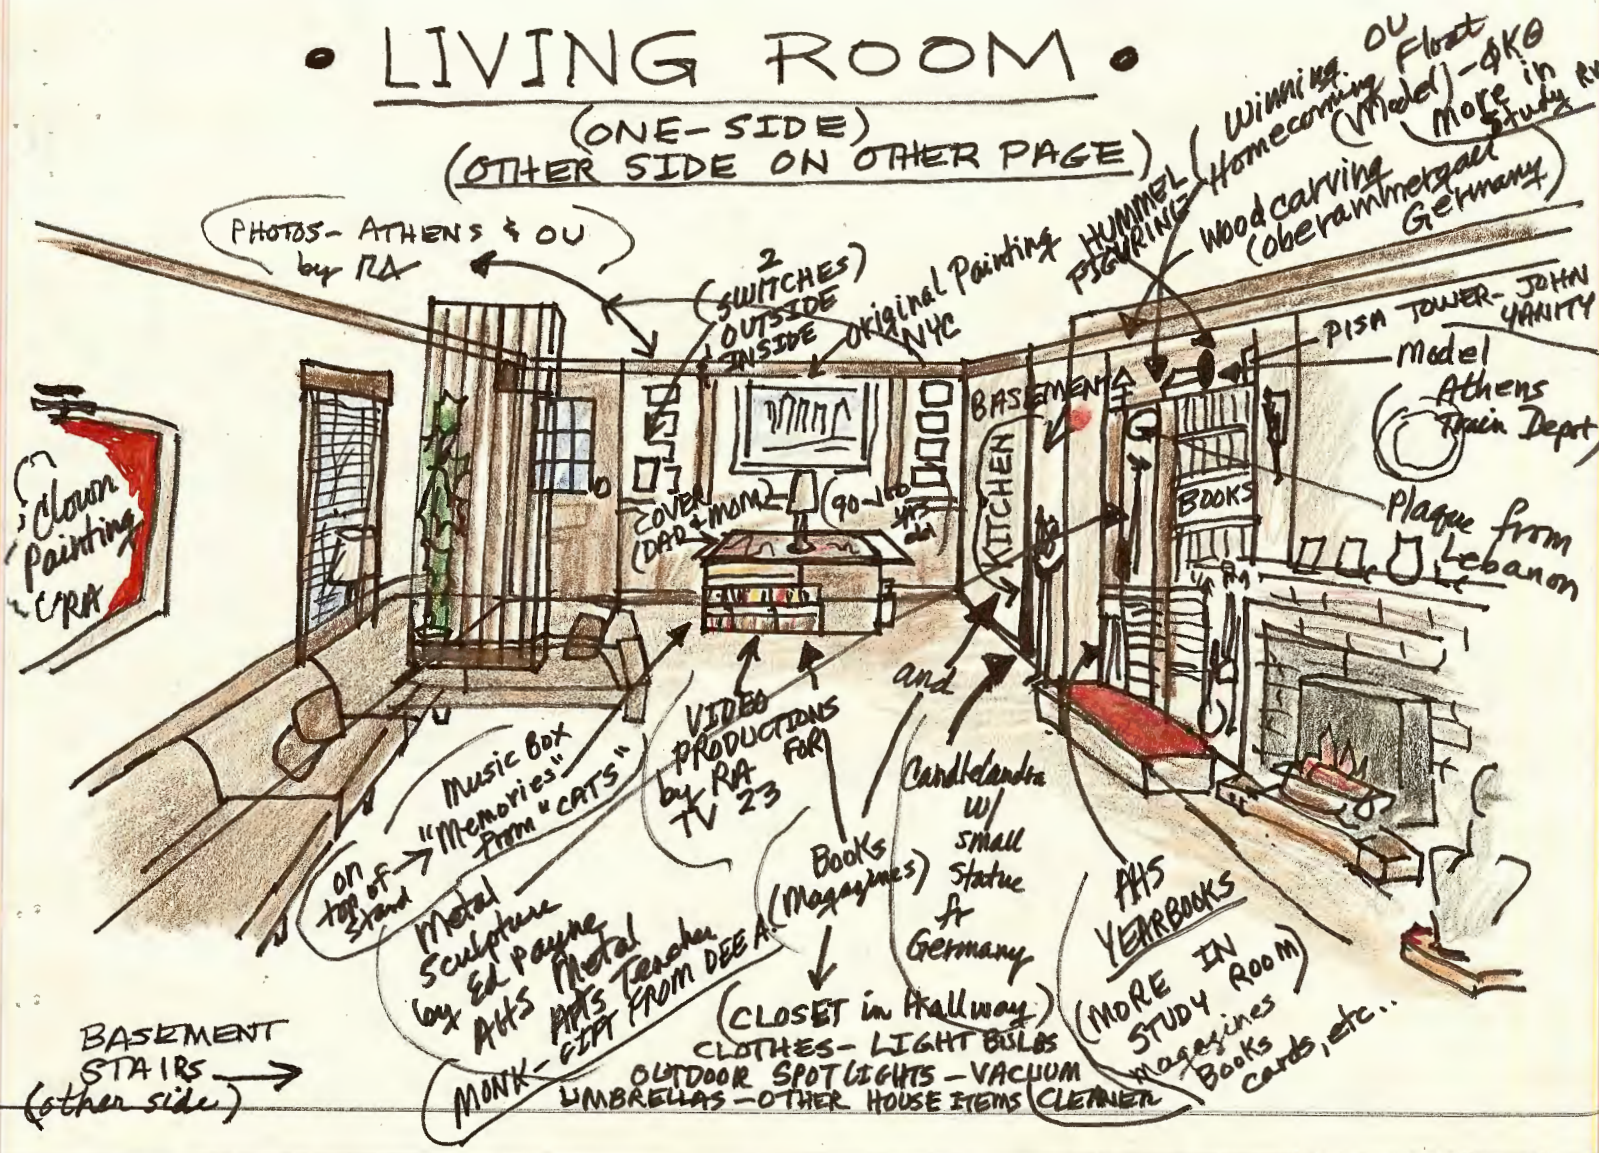 • LIVING ROOM •
(ONE-SIDE)
(OTHER SIDE ON OTHER PAGE)
PHOTOS- ATHENS & OU
by RA
2
(SWITCHES)
OUTSIDE
INSIDE
Original Painting
NYC
HUMMEL
FIGURING
Winning OU
Homecoming Float
(Model)-ΦKΘ
More in
Study Rm
Wood carving
(Oberammergau
Germany)
PISA TOWER- JOHN
YANITY
Model
Athens
Train Depot
Plaque from
Lebanon
Clown
Painting
RA
BASEMENT
KITCHEN
BOOKS
COVER
(DAD & MOM)
(90-100
yrs
old)
and
VIDEO
PRODUCTIONS
by RA FOR
TV 23
Music Box
"Memories"
from "CATS"
on
top of
stand
Metal
Sculpture
by Ed Payne
AHS Metal
Arts Teacher
MONK-GIFT FROM DEE A.
Books
(Magazines)
Candleandra
w/
small
statue
fr
Germany
AHS
YEARBOOKS
(MORE IN
STUDY ROOM)
magazines
Books
cards, etc...
(CLOSET in Hallway)
CLOTHES- LIGHT BULBS
OUTDOOR SPOTLIGHTS -VACUUM
UMBRELLAS -OTHER HOUSE ITEMS CLEANER
BASEMENT
STAIRS
(other side)